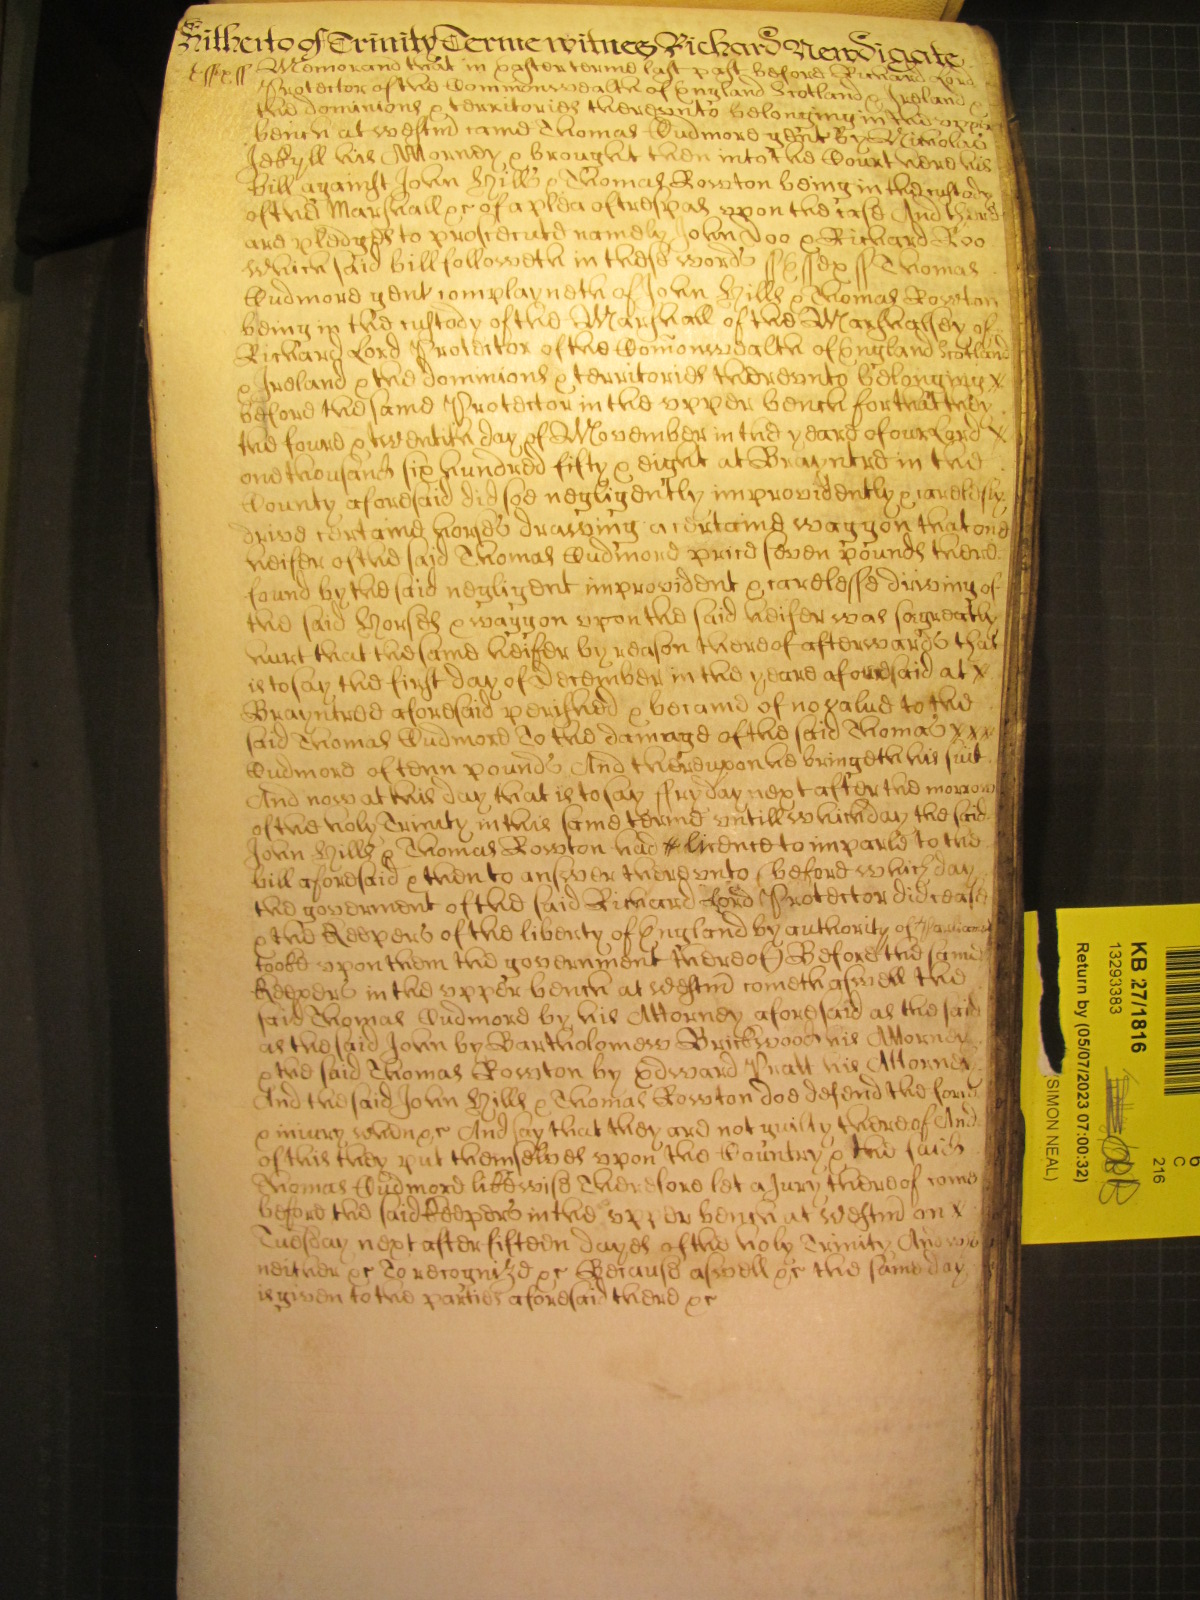 Hitherto of Trinity Terme witnes Richard Newdigate
Essex ss Memorand that in Easter terme last past before Richard Lord
Protector of the Commonwealth of England Scotland & Ireland &
the dominions & territories thereunto belonging in the upper
bench at Westm came Thomas Cudmore gent by Nicholas
Jekyll his Attorney & brought then into the Court here his
Bill against John Hills & Thomas Rowton being in the custody
of the Marshall &c of a plea of trespas upon the case And there
are pledges to prosecute namely John Doo & Richard Roo
which said bill followeth in these words ss Essex ss Thomas
Cudmore gent complayneth of John Hills & Thomas Rowton
being in the custody of the Marshall of the Marshalsey of
Richard Lord Protector of the Comonwealth of England Scotland
& Ireland & the dominions & territories thereunto belonging x
before the same Protector in the upper bench for that they
the foure & twentith day of November in the yeare of our Lord x
one thousand six hundred fifty & eight at Brayntre in the
County aforesaid did soe negligently improvidently & carelesly
drive certaine horses drawing a certaine waggon that one
heifer of the said Thomas Cudmore price seven pounds there
found by the said negligent improvident & carelesse driving of
the said horses & waggon upon the said heifer was so greatly
hurt that the same heifer by reason thereof afterwards that
is to say the first day of December in the yeare aforesaid at x
Brayntree aforesaid perished & became of no value to the
said Thomas Cudmore To the damage of the said Thomas xxx
Cudmore of tenn pounds And thereupon he bringeth his suit
And now at this day that is to say ffryday next after the morrow
of the holy Trinity in this same terme untill which day the said
John Hills & Thomas Rowton had licence to imparle to the
bill aforesaid & then to answer thereunto (before which day
the goverment of the said Richard Lord Protector did cease
& the Keepers of the liberty of England by authority of Parliament
tooke upon them the government thereof) Before the same
Keepers in the upper bench at Westm cometh aswell the
said Thomas Cudmore by his Attorney aforesaid as the said
as the said John by Bartholomew Brickwood his Attorney
& the said Thomas Rowton by Edward Pratt his Attorney
And the said John Hills & Thomas Rowton doe defend the force
& injury when &c And say that they are not guilty thereof And
of this they put themselves upon the Country & the said
Thomas Cudmore likewise Therefore let a Jury thereof come
before the said Keepers in the upper bench at Westm on x
Tuesday next after fifteen dayes of the holy Trinity And who
neither &c To recognize &c Because aswell &c the same day
is given to the parties aforesaid there &c
KB 27/1816
13293383
Return by (05/07/2023 07:00:32)
(SIMON NEAL)
216
C
6